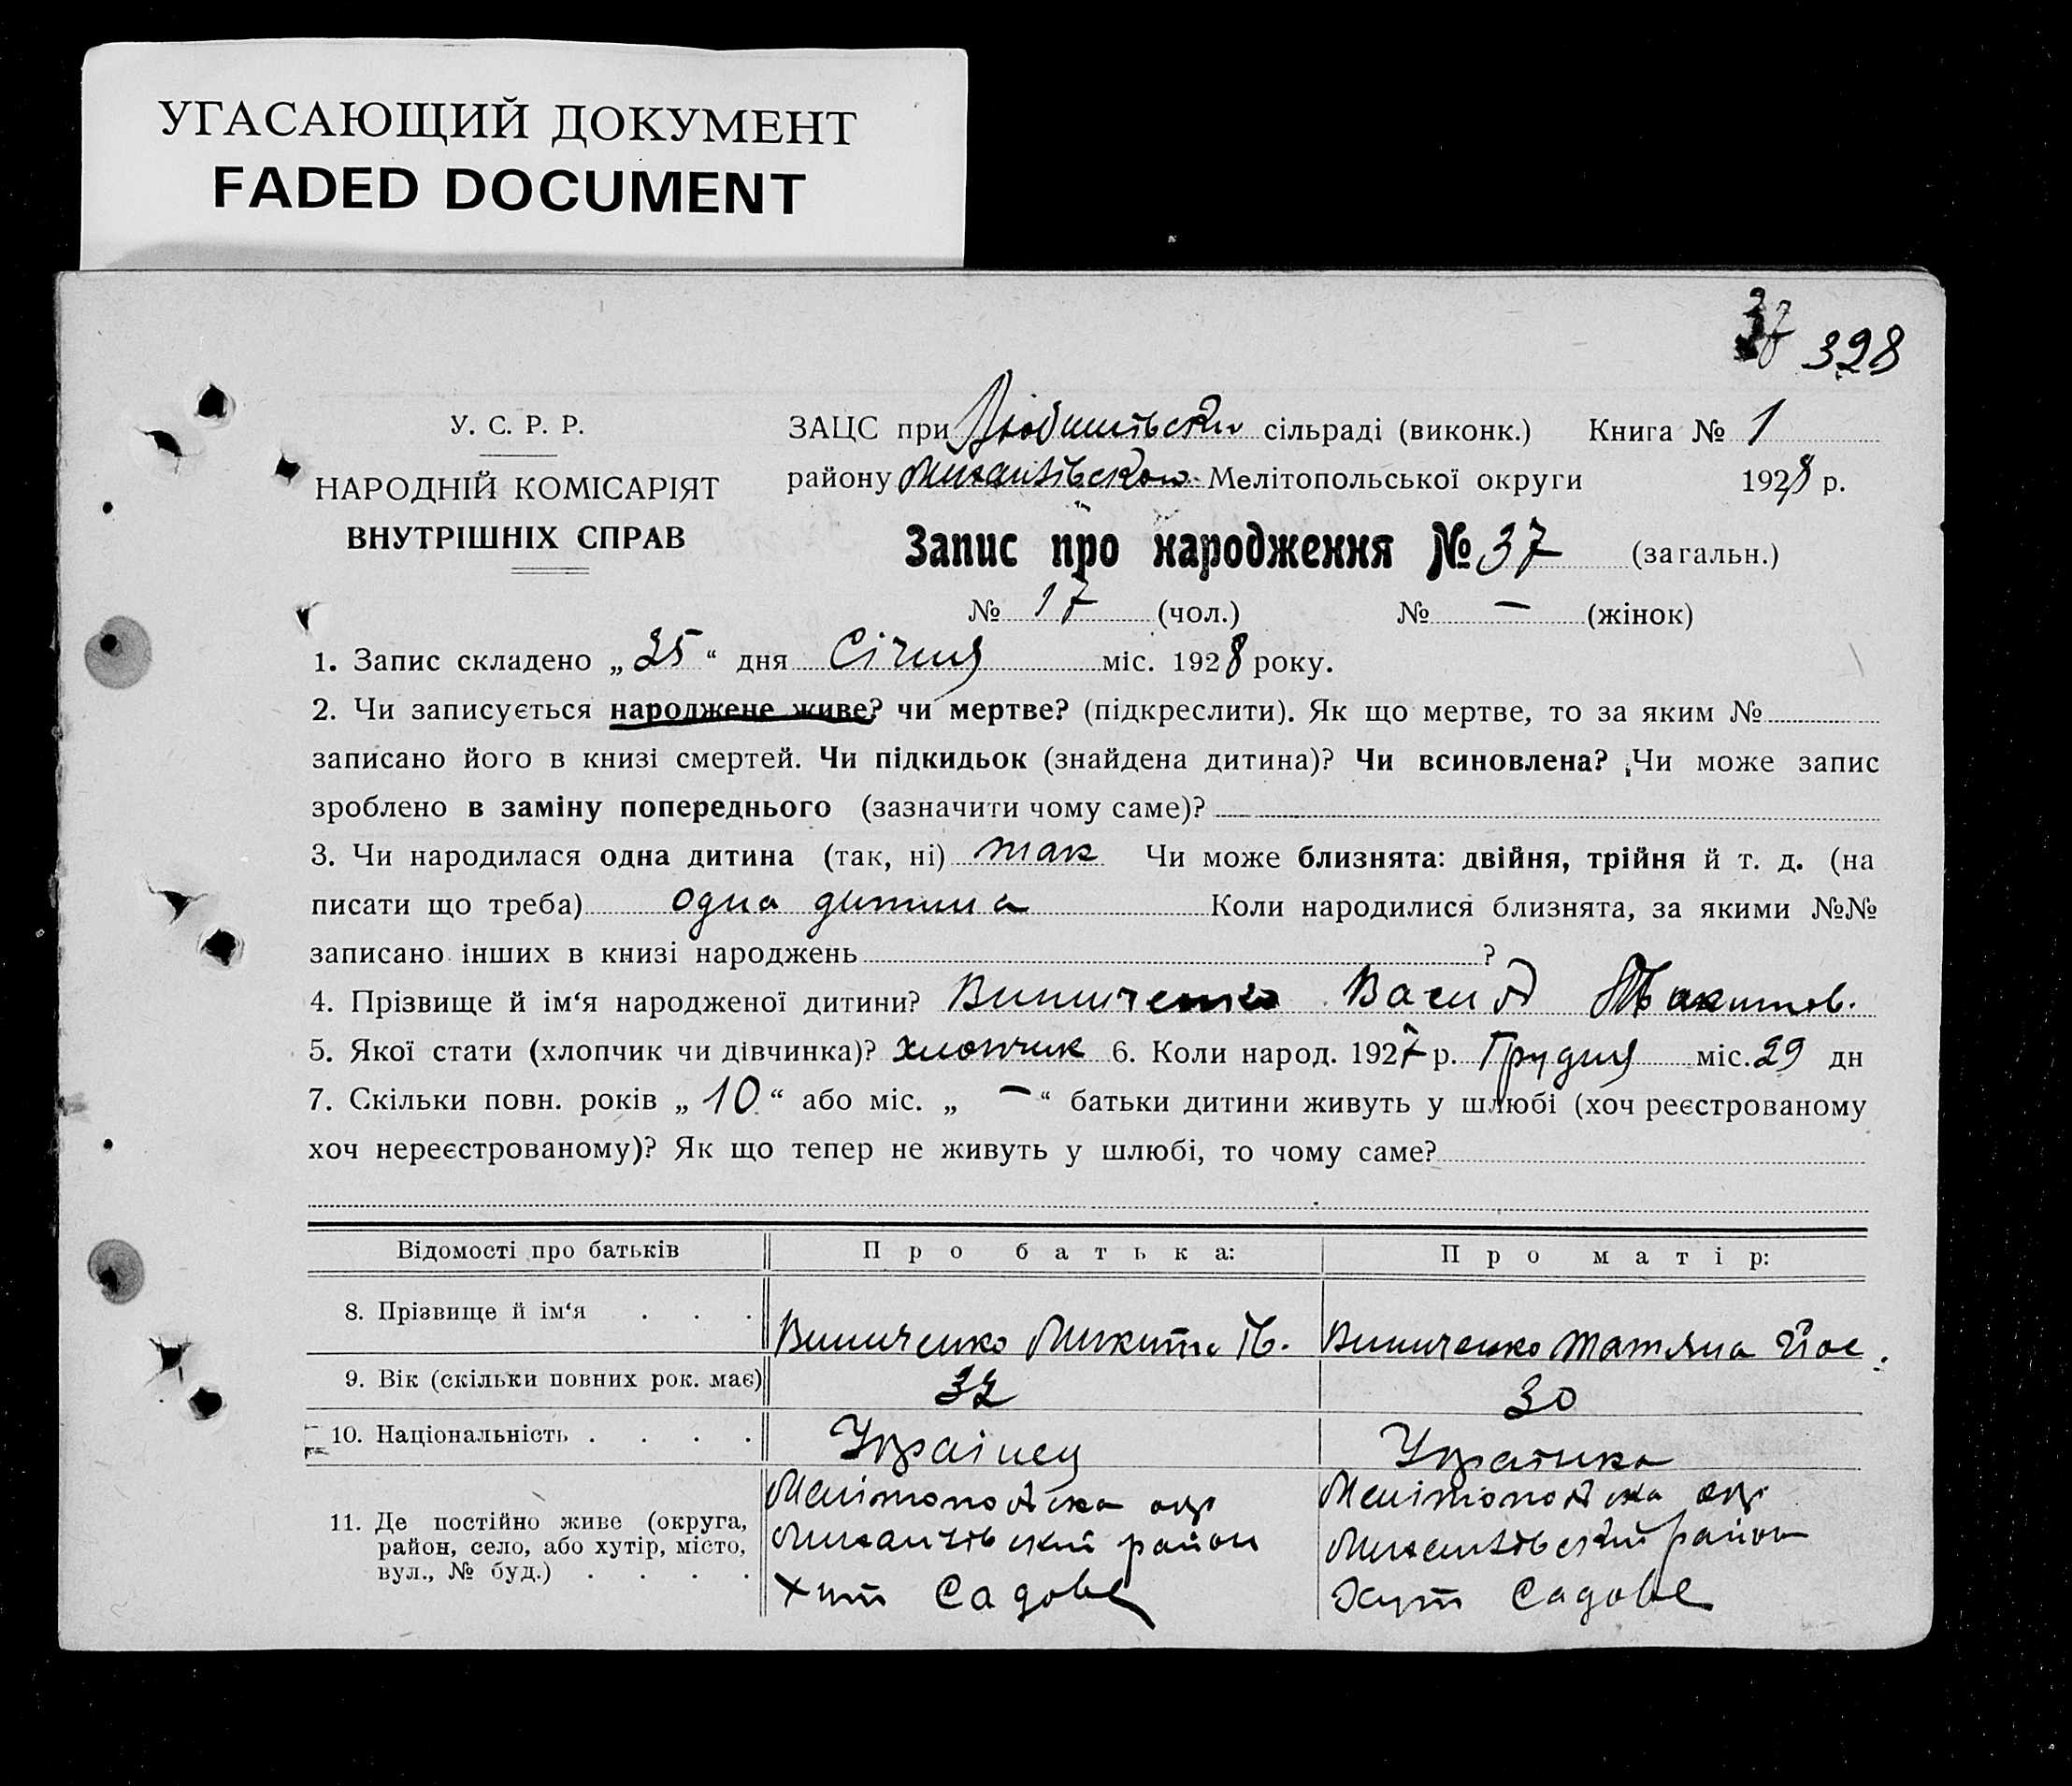 УГАСАЮЩИЙ ДОКУМЕНТ
FADED DOCUMENT
37 328
У. С. Р. Р.
НАРОДНІЙ КОМІСАРІЯТ
ВНУТРІШНІХ СПРАВ
ЗАЦС при сільраді (виконк.) Книга № 1
району Мелітопольської округи 1928 р.
Запис про народження № 37 (загальн.)
№ 17 (чол.) № — (жінок)
1. Запис складено „25“ дня Січня міс. 1928 року.
2. Чи записується народжене живе? чи мертве? (підкреслити). Як що мертве, то за яким №
записано його в книзі смертей. Чи підкидьок (знайдена дитина)? Чи всиновлена? Чи може запис
зроблено в заміну попереднього (зазначити чому саме)?
3. Чи народилася одна дитина (так, ні) так Чи може близнята: двійня, трійня й т. д. (на
писати що треба) одна дитина Коли народилися близнята, за якими №№
записано інших в книзі народжень ?
4. Прізвище й ім‘я народженої дитини? Винниченко Васил
5. Якої стати (хлопчик чи дівчинка)? хлопчик 6. Коли народ. 1927 р. Грудня міс. 29 дн
7. Скільки повн. років „10“ або міс. „—“ батьки дитини живуть у шлюбі (хоч реєстрованому
хоч нереєстрованому)? Як що тепер не живуть у шлюбі, то чому саме?
Відомості про батьків Про батька: Про матір:
8. Прізвище й ім‘я . . . Винниченко Микита Винниченко Татяна Йос.
9. Вік (скільки повних рок. має) 32 30
10. Національність . . . . Українец Українка
11. Де постійно живе (округа, район, село, або хутір, місто, вул., № буд.) . . . .
Мелітопольська окр
Михайлівський район
Хут Садове
Мелітопольска окр
Михайлівський район
Хут Садове